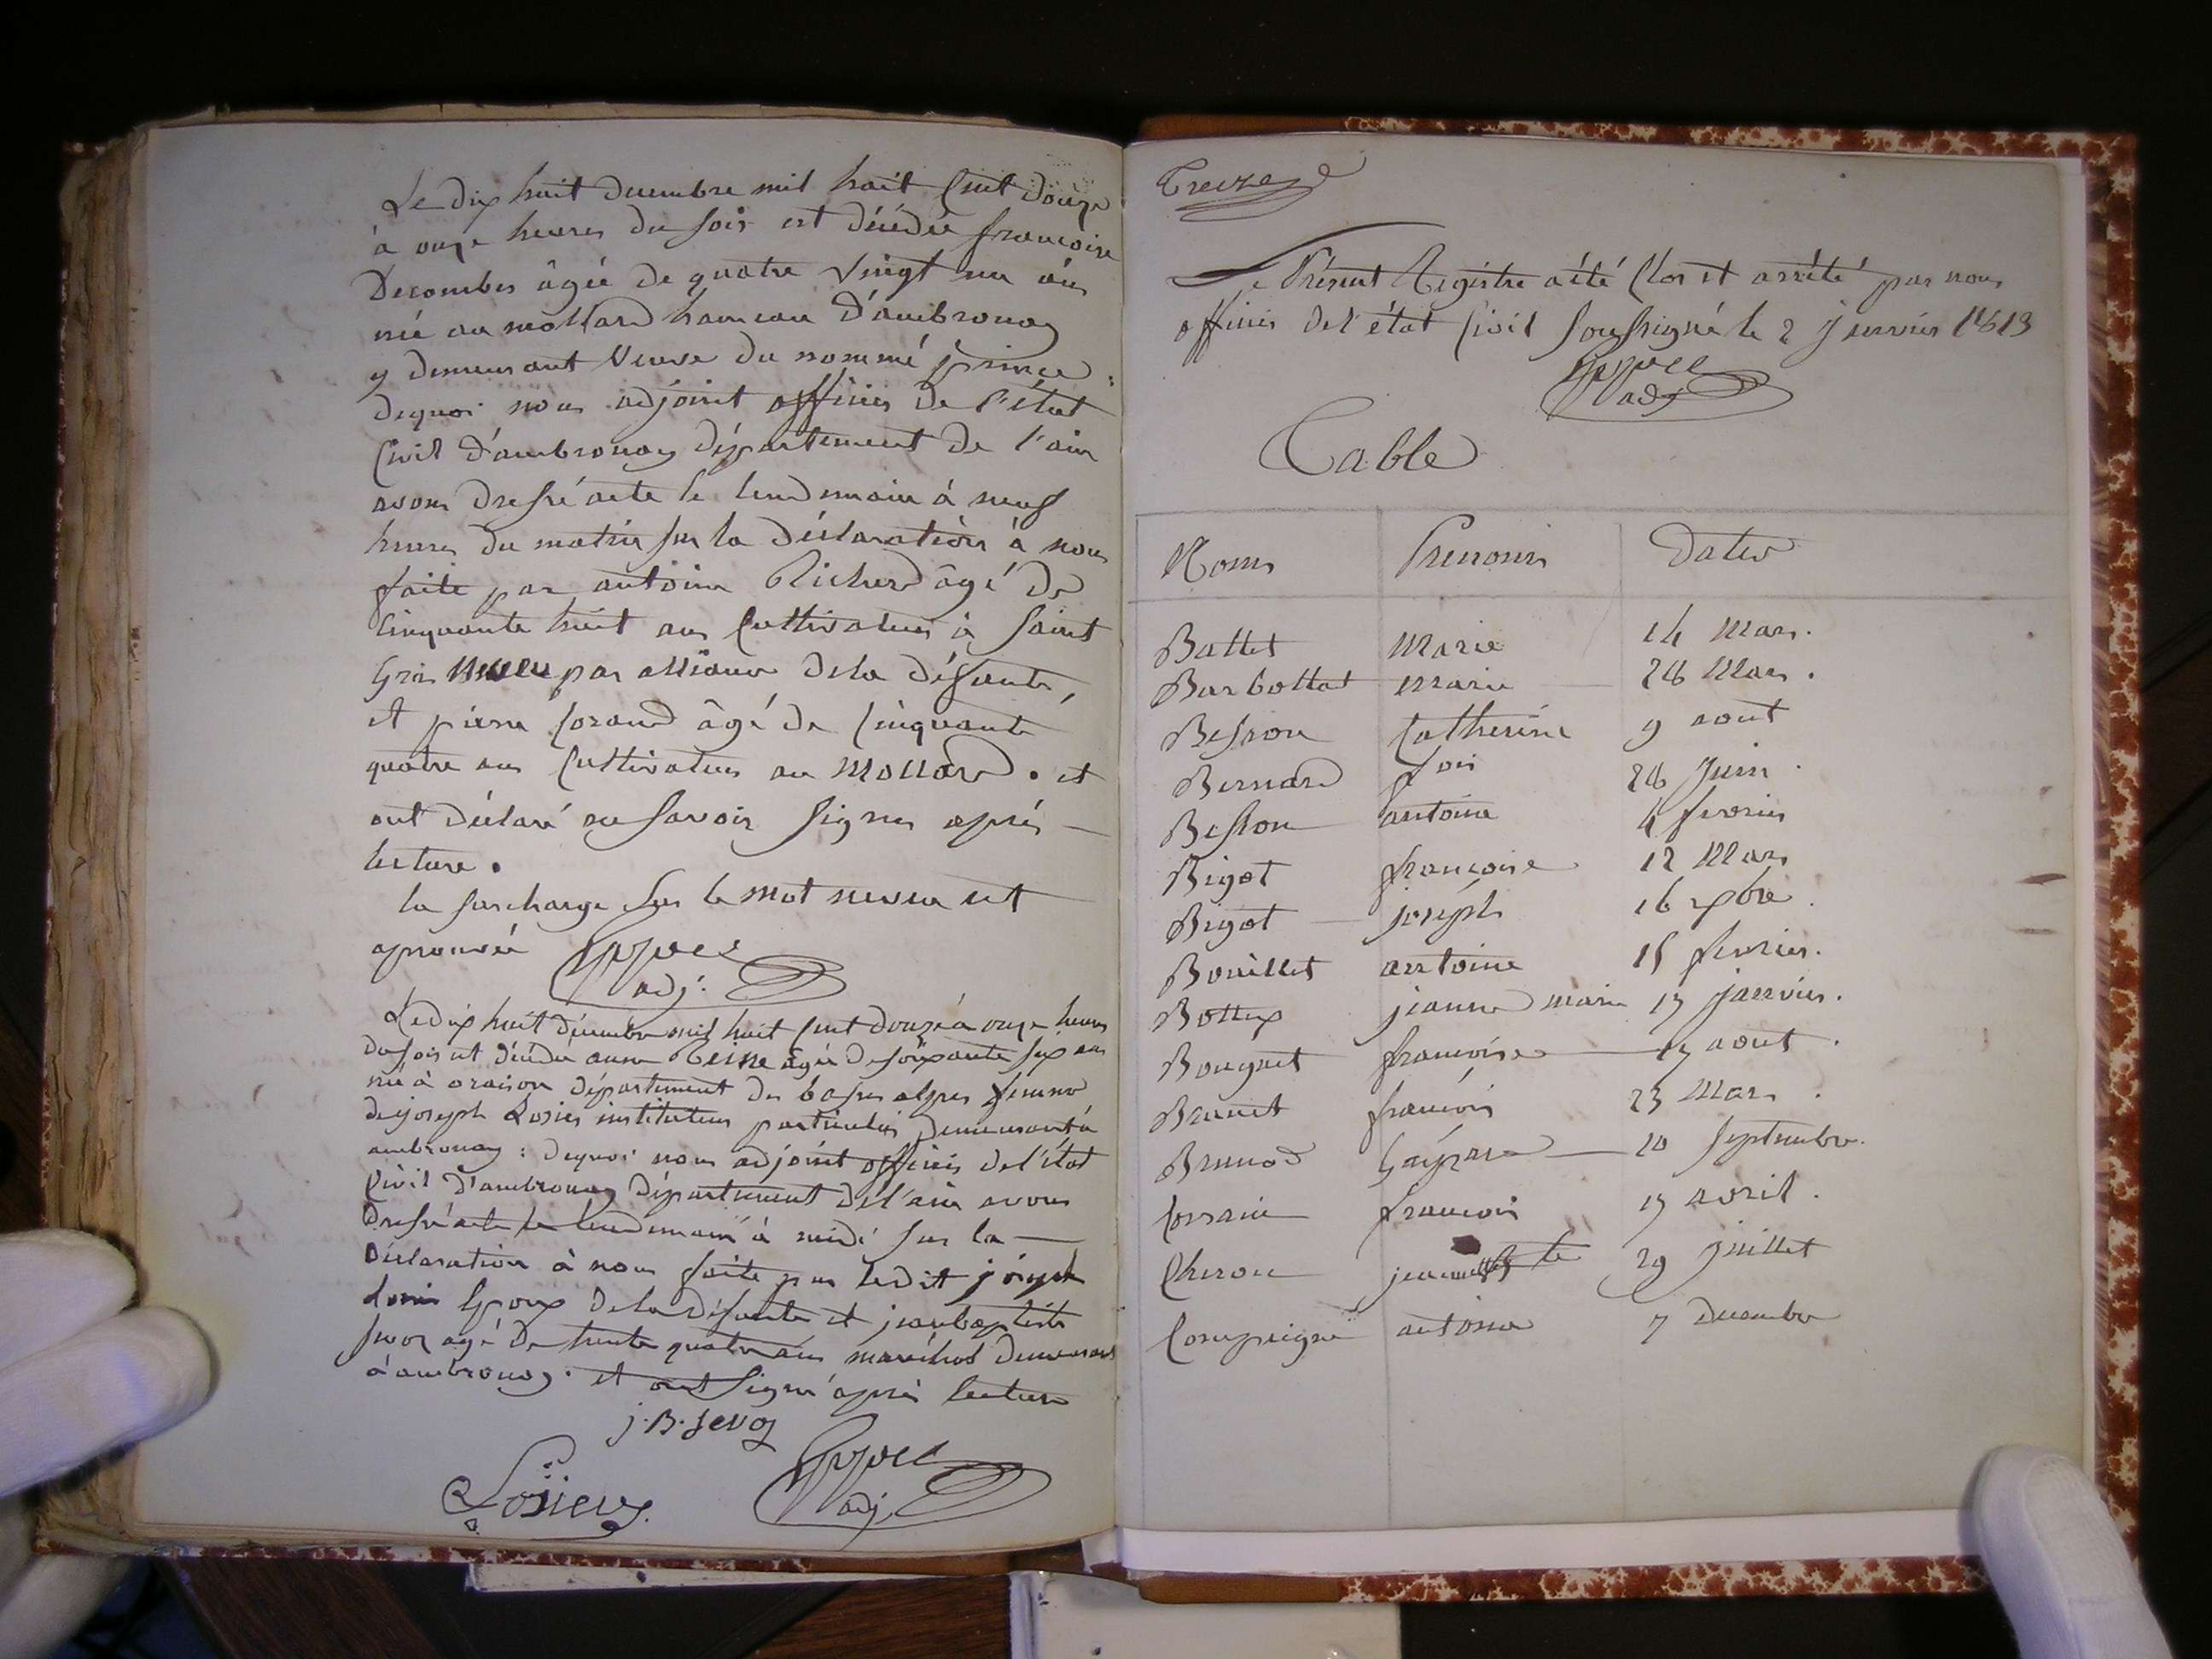 Le dix huit decembre mil huit Cent douze
à onze heures du soir est décédée françoise
Decombes âgée de quatre vingt un ans
née au mollard hameau d'ambronay
y demeurant veuve du nommé prince
dequoi nous adjoint officier de l'état
Civil d'ambronay département de l'ain
avons dressé acte le lendemain à neuf
heures du matin sur la déclaration à nous
faite par antoine Richerd âgé de
Cinquante huit ans Cultivateur à Saint
Gras neveu par alliance de la défunte,
et pierre Corand âgé de Cinquante
quatre ans Cultivateur au Mollard. et
ont déclaré ne savoir signer après
lecture.
la surcharge sur le mot neveu est
aprouvée
adj.
Le dix huit décembre mil huit Cent douze à onze heures
du soir est décédée anne Reine âgée de soixante sept ans
née à oraison département des basses alpes femme
de joseph Losier instituteur particulier demeurant à
ambronay : dequoi nous adjoint officier de l'état
Civil d'ambronay département de l'ain avons
dressé acte le lendemain à midi sur la
déclaration à nous faite par ledit joseph
Losier Epoux de la défunte et jean baptiste
Sevoz agé de trente quatre ans maréchal demeurant
à ambronay. et ont signé après lecture
j.B. Sevoz
Losier
adj.
Treize
Le Présent Registre a été Clos et arrêté par nous
officier de l'état Civil soussigné le 2 Janvier 1813
adj
Table
Noms Prenoms Dates
Ballet Marie 14 Mars.
Barbollat Marie 28 Mars.
Besson Catherine 9 aout
Bernard 28 Juin
Besson antoine 4 fevrier
Bigot françoise 12 Mars
Bigot joseph 16 xbre
Bouillet antoine 15 fevrier.
Bottex jeanne marie 13 janvier.
Bouquet françoise aout
Brunet françois 23 Mars
Brunod Gaspard 20 Septembre.
Corrain françois 13 avril.
Cheron 29 juillet
Compeigne antoine 7 Decembre